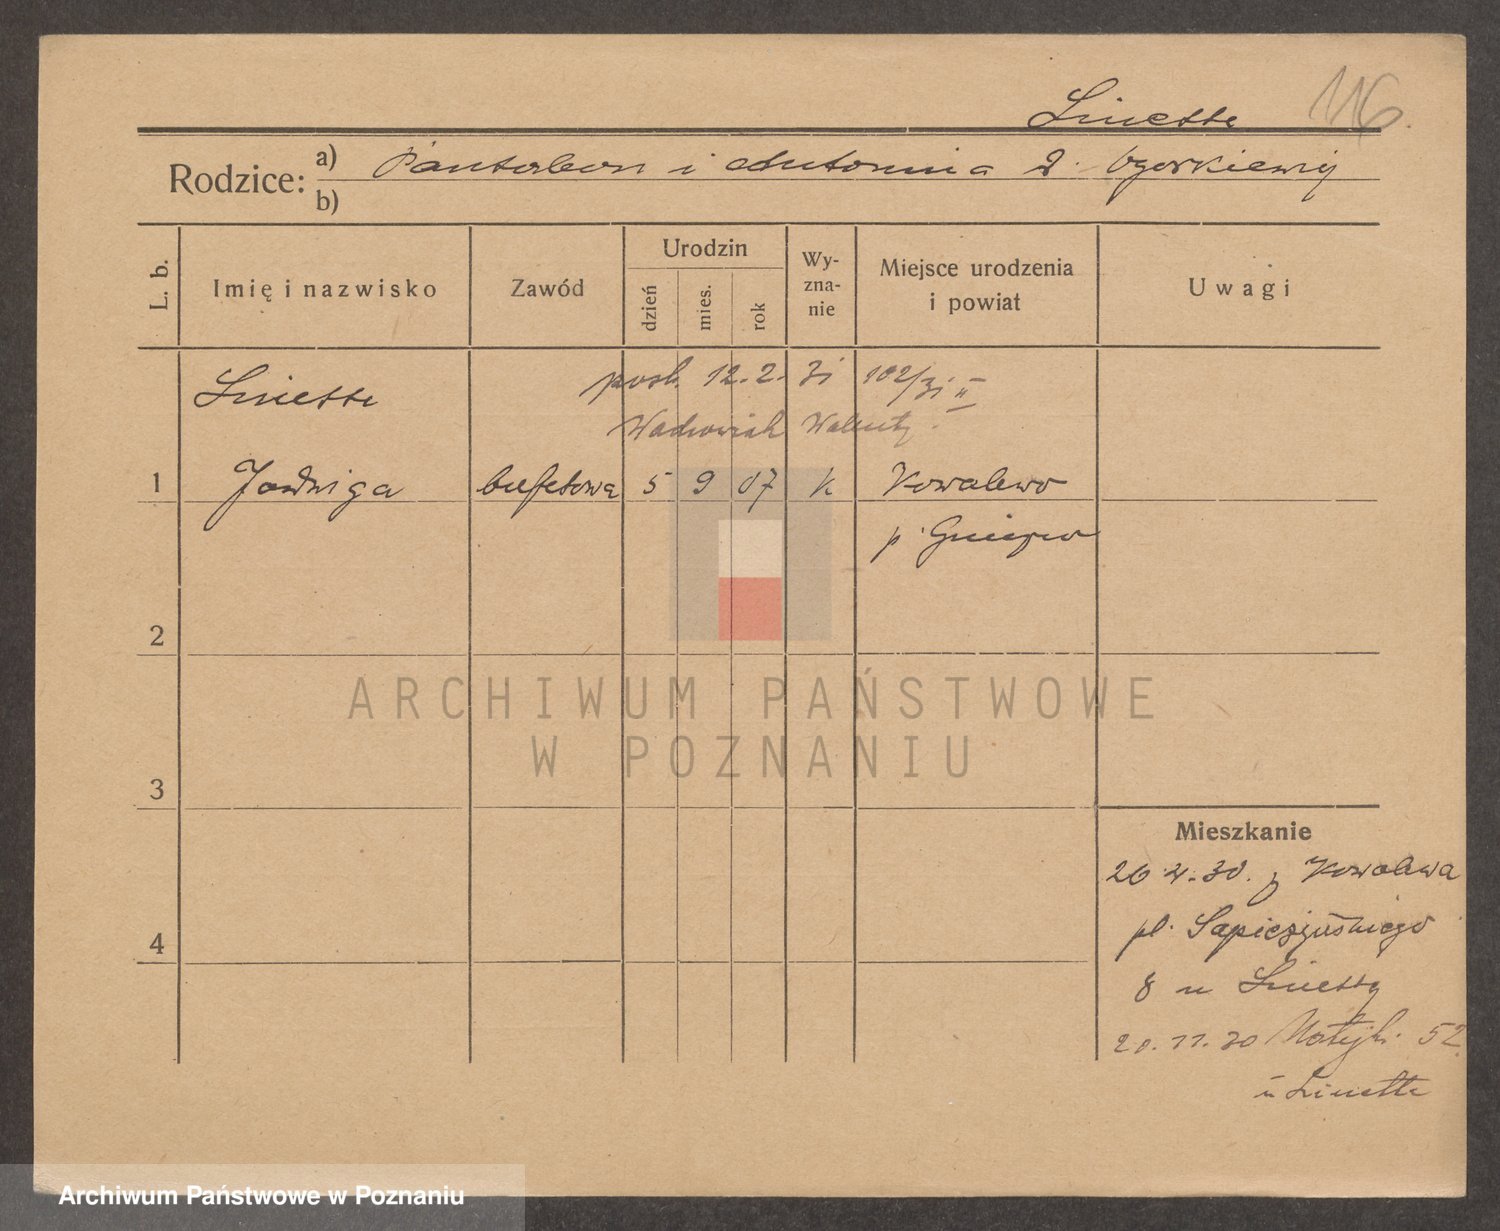 Linette 116
Rodzice: a) Pantaleon i Antonina
b)
L. b.
Imię i nazwisko
Zawód
Urodzin
dzień
mies.
rok
Wy-
zna-
nie
Miejsce urodzenia
i powiat
Uwagi
Linette posl. 12.2. 31 102/31 II
Wachowiak Walenty
1 Jadwiga bufetowa 5 9 07 k Kowalewo
p. Gniezno
2
3
4
Mieszkanie
z Kowalewa
pl. Sapieżyńskiego
8 u Linetty
20.11.30 Matejk. 52
u Linette
ARCHIWUM PAŃSTWOWE
W POZNANIU
Archiwum Państwowe w Poznaniu